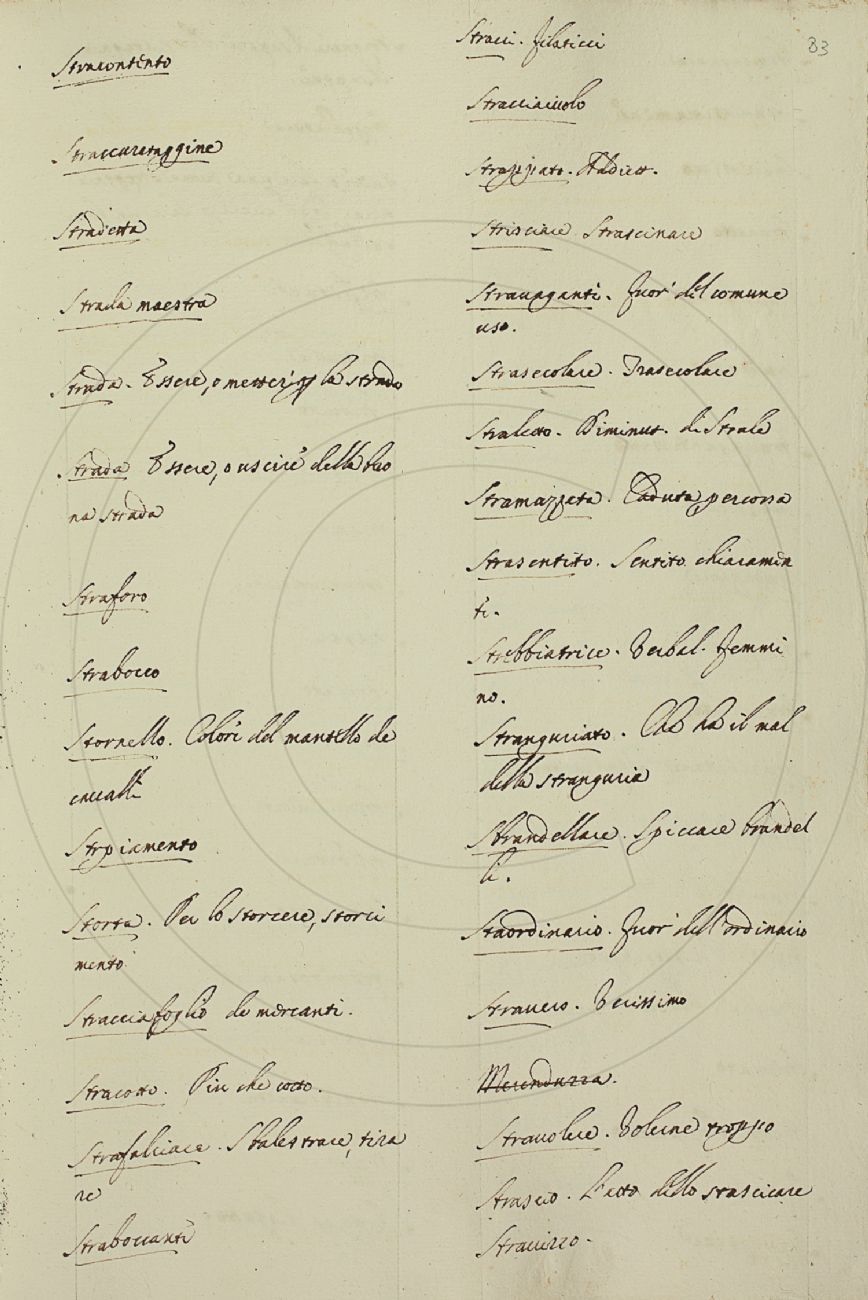 83
Stracontento
Straccurataggine
Stradetta
Strada maestra
Strada. Essere, o metter p la strada
Strada Essere, o uscire della buo
na strada
Straforo
Strabocco
Stornello. Colore del mantello de
cavalli
Storpiamento
Storta. Per lo storcere, storci
mento
Stracciafoglio de mercanti.
Stracotto. Piu che cotto.
Strafalciare. Sbalestrare, tira
re
Straboccante
Stracci. filaticci
Stracciaiuolo
Strappato. Addiett.
Strisciare Strascinare
Stravaganti. fuor del comune
uso.
Strasecolare. Trasecolare
Straletto. Diminut. di Strale
Stramazzata. Caduta, percossa
Strasentito. Sentito chiaramen
te.
Strebbiatrice. Verbal. femmi
no.
Stranguriato. Che ha il mal
della stranguria
Strandellare. Spiccare brandel
li.
Staordinario. fuor dell'ordinario
Stravero. Verissimo
Stravolere. Volerne troppo
Strascio. L'atto dello strascicare
Stravizzo.